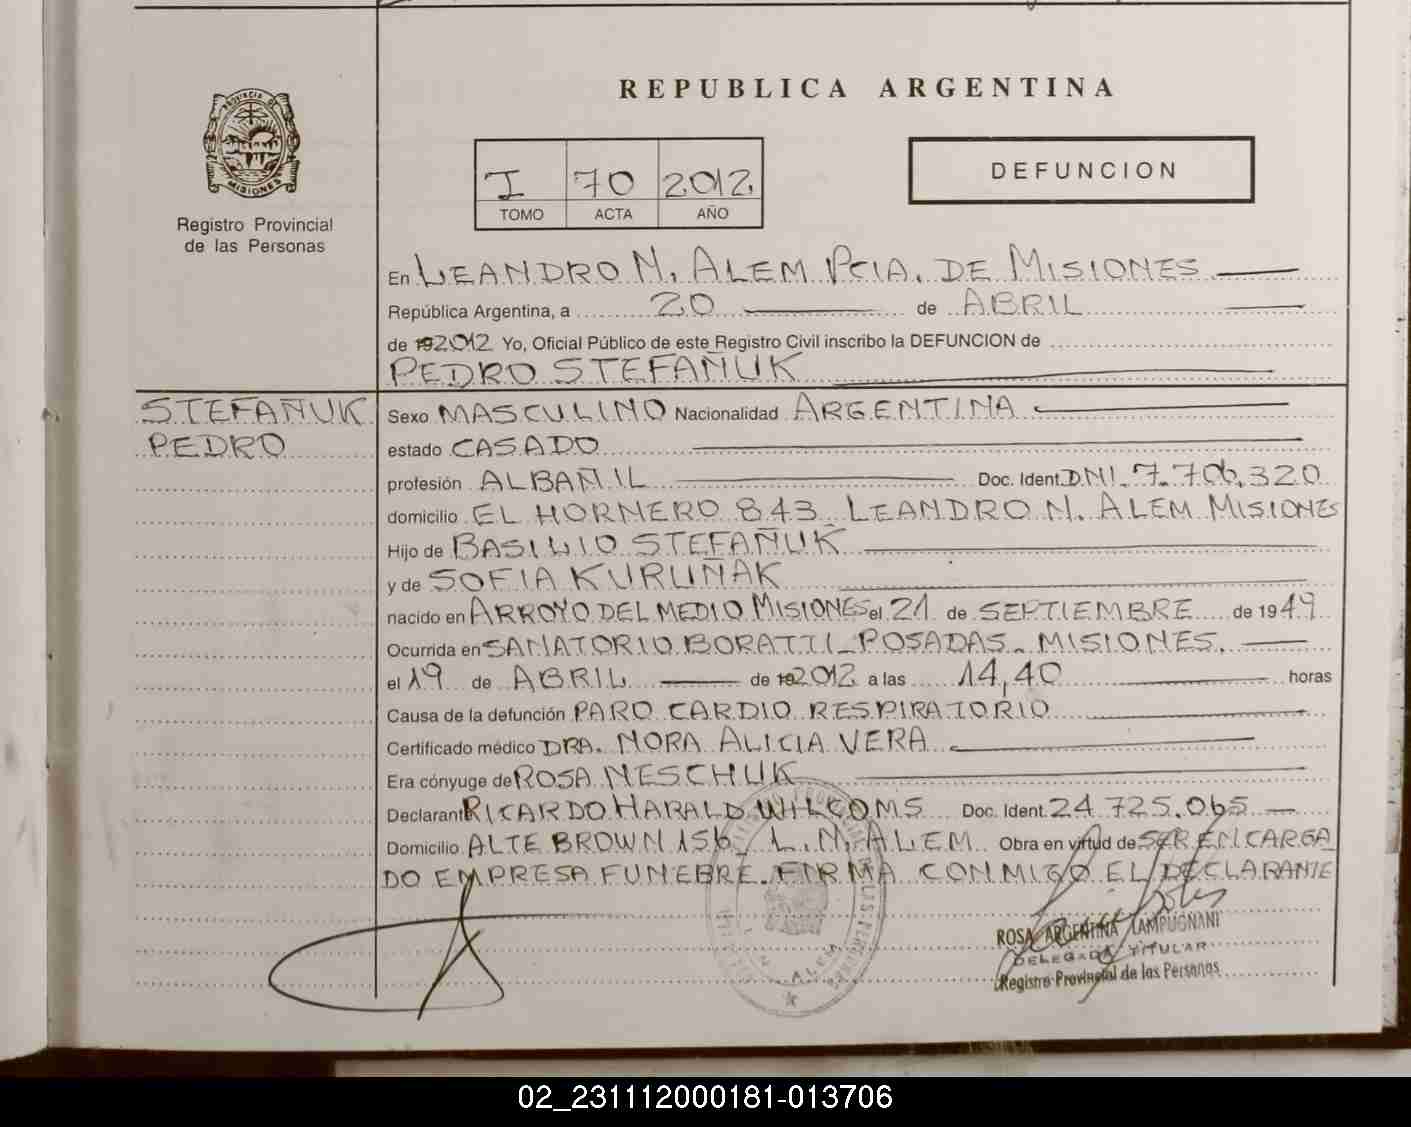 REPUBLICA ARGENTINA
PROVINCIA DE
MISIONES
Registro Provincial
de las Personas
I 70 2012
TOMO ACTA AÑO
DEFUNCION
En LEANDRO N. ALEM PCIA. DE MISIONES
República Argentina, a 20 de ABRIL
de 192012 Yo, Oficial Público de este Registro Civil inscribo la DEFUNCION de
PEDRO STEFAÑUK
STEFAÑUK
PEDRO
Sexo MASCULINO Nacionalidad ARGENTINA
estado CASADO
profesión ALBAÑIL Doc. Ident. DNI. 7.706.320
domicilio EL HORNERO 843 LEANDRO N. ALEM MISIONES
Hijo de BASILIO STEFAÑUK
y de SOFIA KURUÑAK
nacido en ARROYO DEL MEDIO MISIONES el 21 de SEPTIEMBRE de 1949
Ocurrida en SANATORIO BORATTI - POSADAS - MISIONES.
el 19 de ABRIL de 192012 a las 14,40 horas
Causa de la defunción PARO CARDIO RESPIRATORIO
Certificado médico DRA. NORA ALICIA VERA
Era cónyuge de ROSA NESCHUK
Declarant RICARDO HARALD WILCOMS Doc. Ident. 24.725.065
Domicilio ALTE BROWN 156 L.N. ALEM Obra en virtud de SER ENCARGA
DO EMPRESA FUNEBRE. FIRMA CONMIGO EL DECLARANTE
L. N. ALEM
ROSA ARGENTINA LAMPUGNANI
DELEGADA TITULAR
Registro Provincial de las Personas
02_231112000181-013706